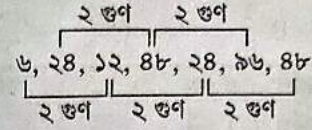 ২ গুণ ২ গুণ
৬, ২৪, ১২, ৪৮, ২৪, ৯৬, ৪৮
২ গুণ ২ গুণ ২ গুণ